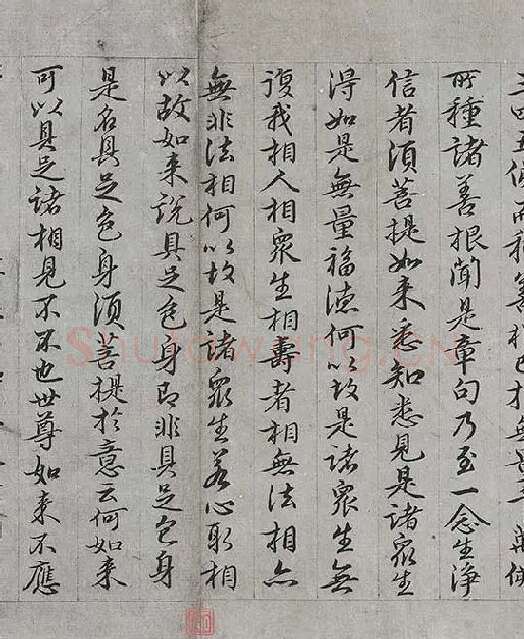 三四五佛而種善根已於無量千萬佛
所種諸善根聞是章句乃至一念生淨
信者須菩提如来悉知悉見是諸衆生
得如是無量福德何以故是諸衆生無
復我相人相衆生相壽者相無法相亦
無非法相何以故是諸衆生若心取相
以故如来說具足色身即非具足色身
是名具足色身須菩提於意云何如来
可以具足諸相見不不也世尊如来不應
Shufawang.cn